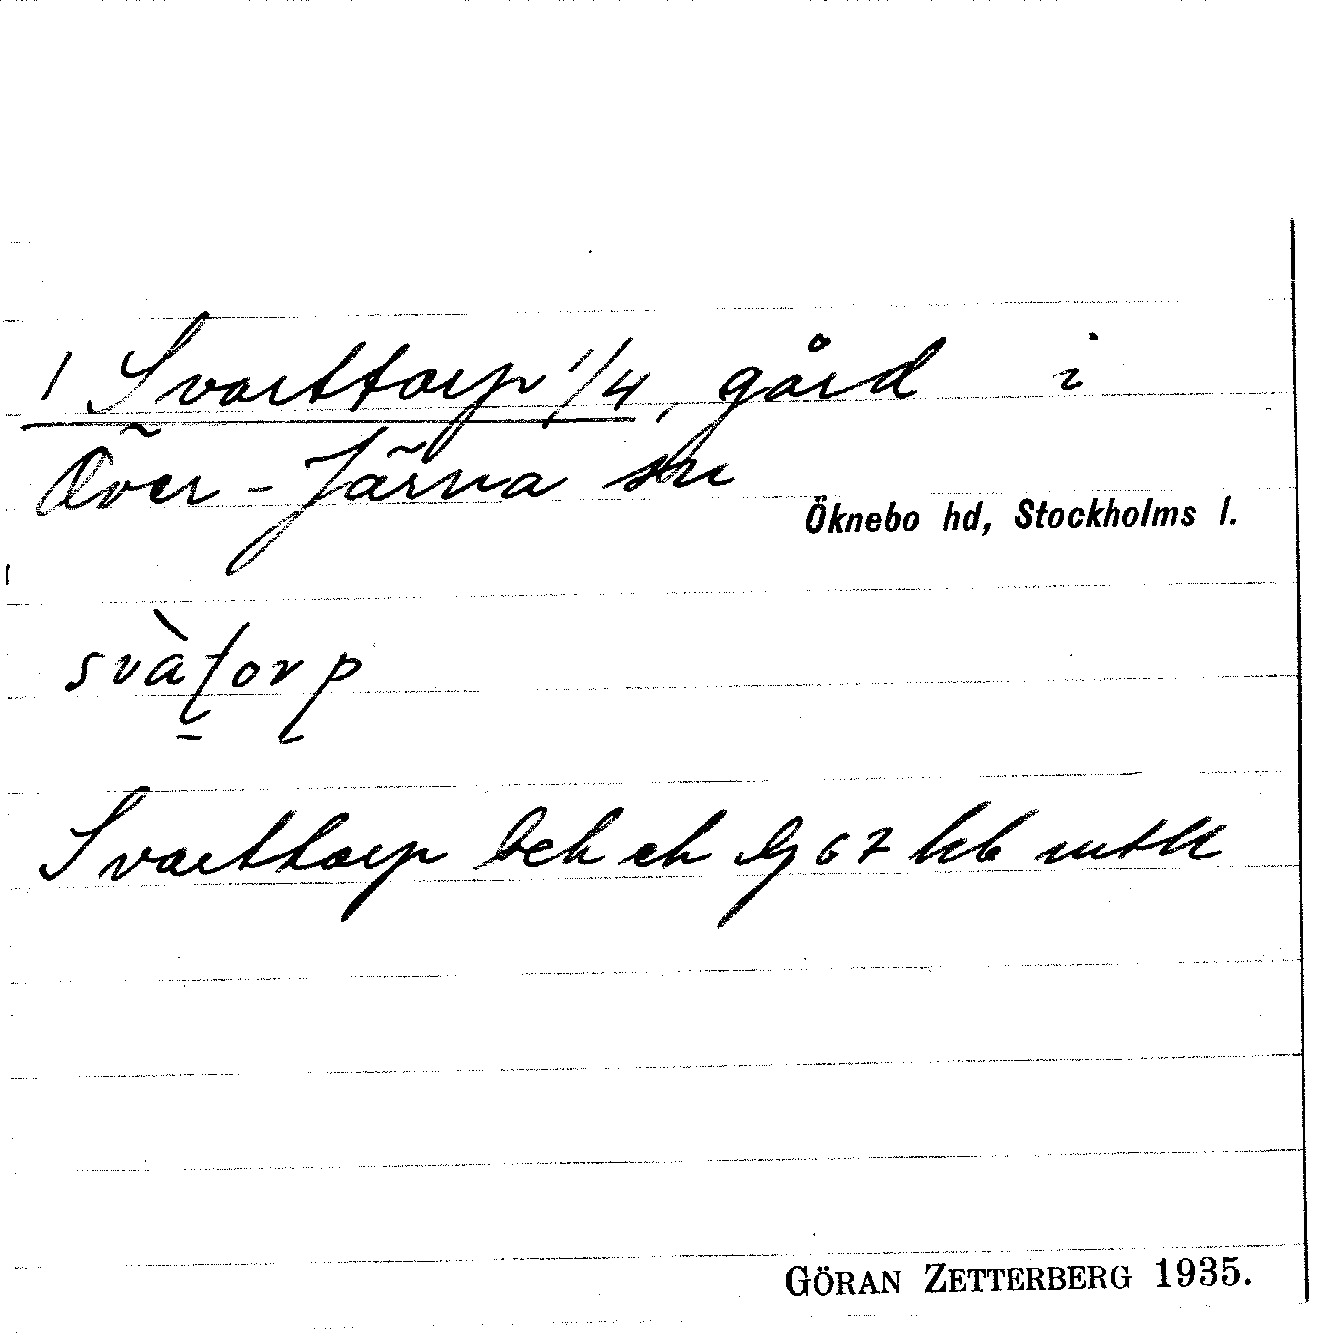 1 Svarttorp 1/4, gård i
Över-Järna sn
Öknebo hd, Stockholms l.
svàʈorp
Svarttorp bek ek lg 67 hb mtl
GÖRAN ZETTERBERG 1935.